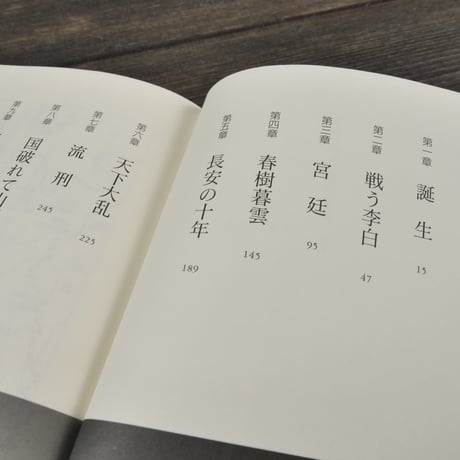 第一章 誕生 15
第二章 戦う李白 47
第三章 宮廷 95
第四章 春樹暮雲 145
第五章 長安の十年 189
第六章 天下大乱 225
第七章 流刑 245
第八章 国破れて山
第九章